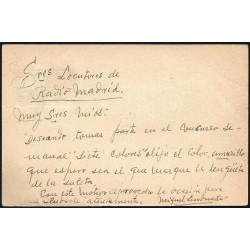 Sres Locutores de
Radio Madrid.
Muy Sres mios:
Deseando tomar parte en el Concurso se-
manal "Siete Colores" elijo el Color amarillo
que espero sea el que marque la lengüeta
de la
Con este motivo aprovecho la ocasión para
saludarle atentamente. Miguel